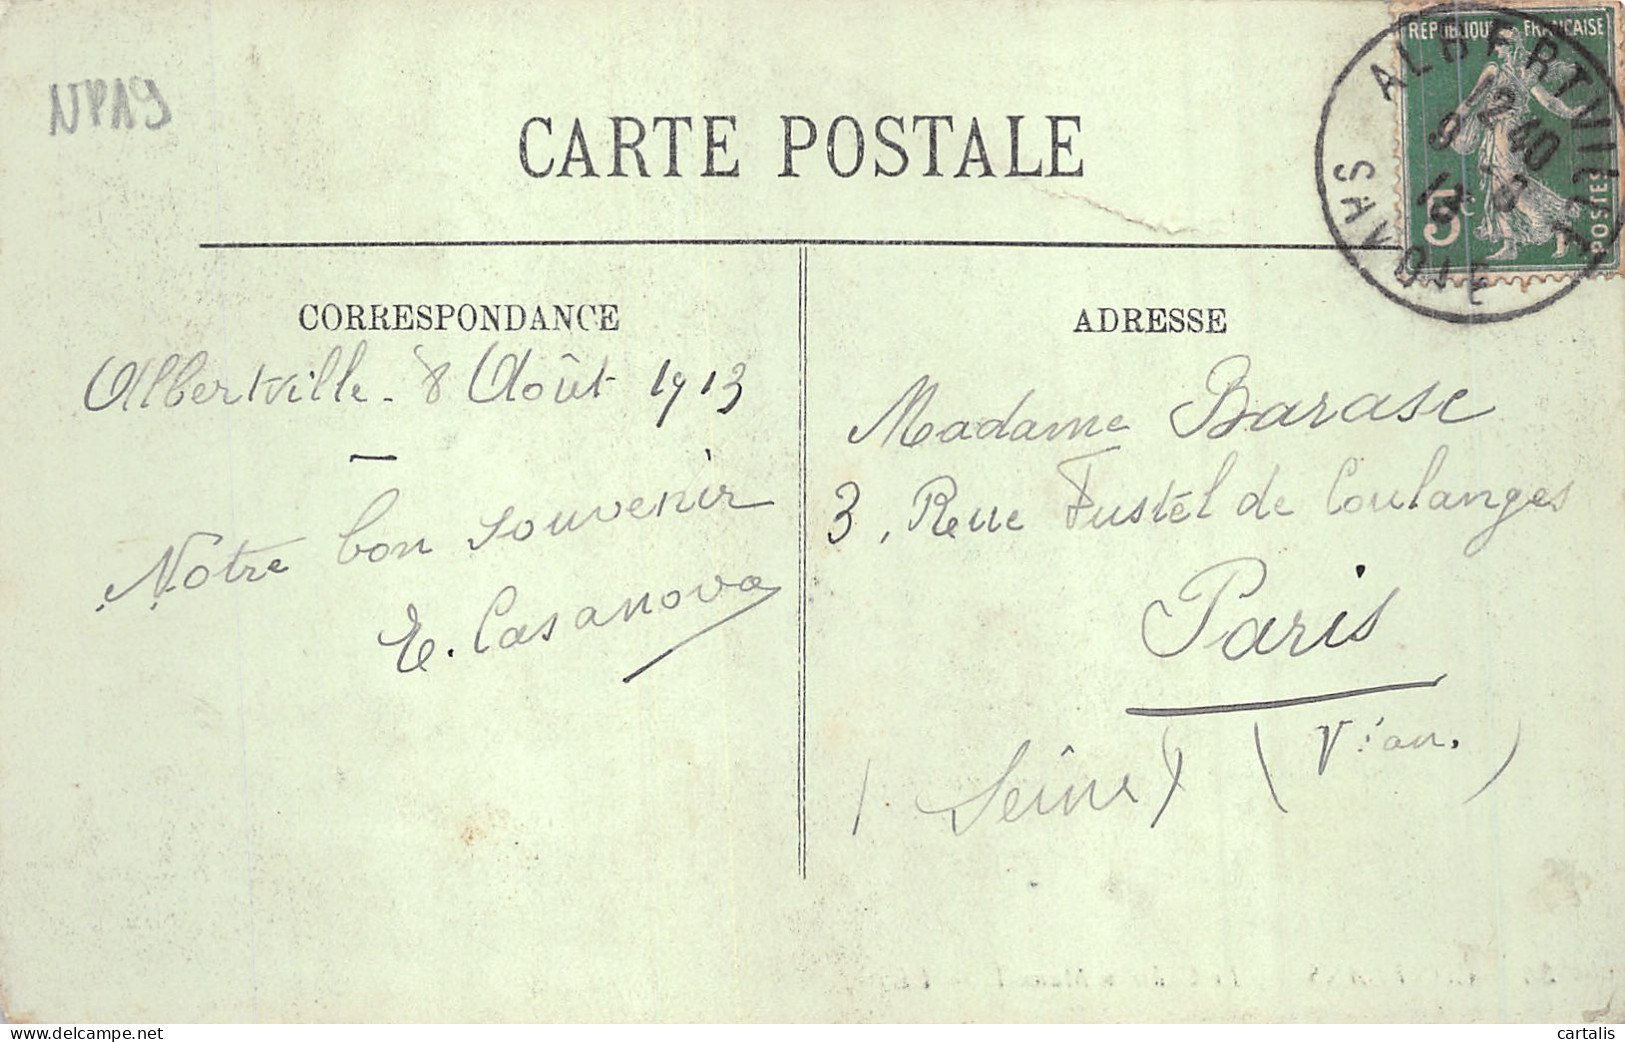 NPA9
CARTE POSTALE
REPUBLIQUE FRANCAISE
POSTES
5c
ALBERTVILLE
12 40
9 - 8
13
SAVOIE
CORRESPONDANCE
Albertville - 8 Août 1913
Notre bon souvenir
E. Casanova
ADRESSE
Madame Barasc
3, Rue Fustel de Coulanges
Paris
(Seine) (Vè an.)
cartalis